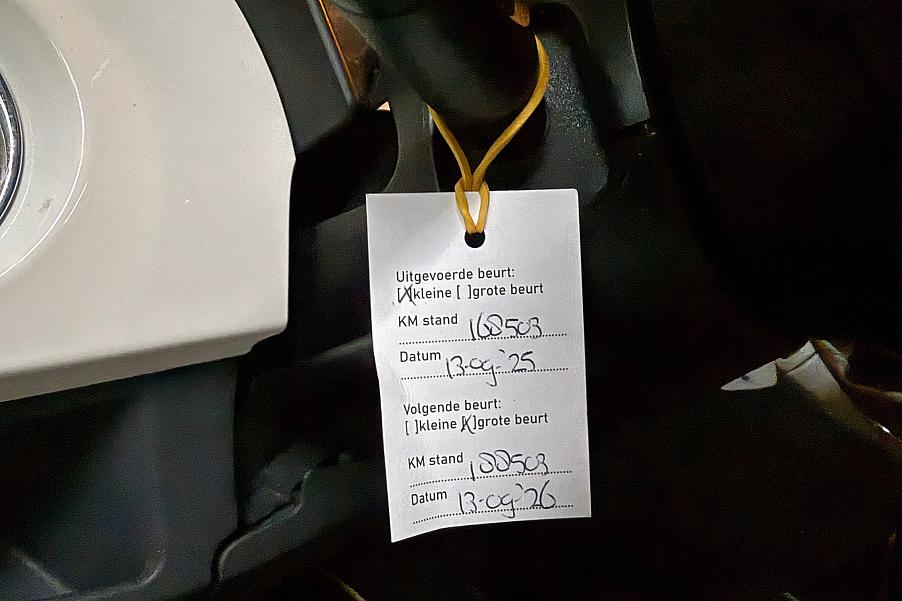 Uitgevoerde beurt:
[X]kleine [ ]grote beurt
KM stand 168503
Datum 13-09-'25
Volgende beurt:
[ ]kleine [X]grote beurt
KM stand 188503
Datum 13-09-'26